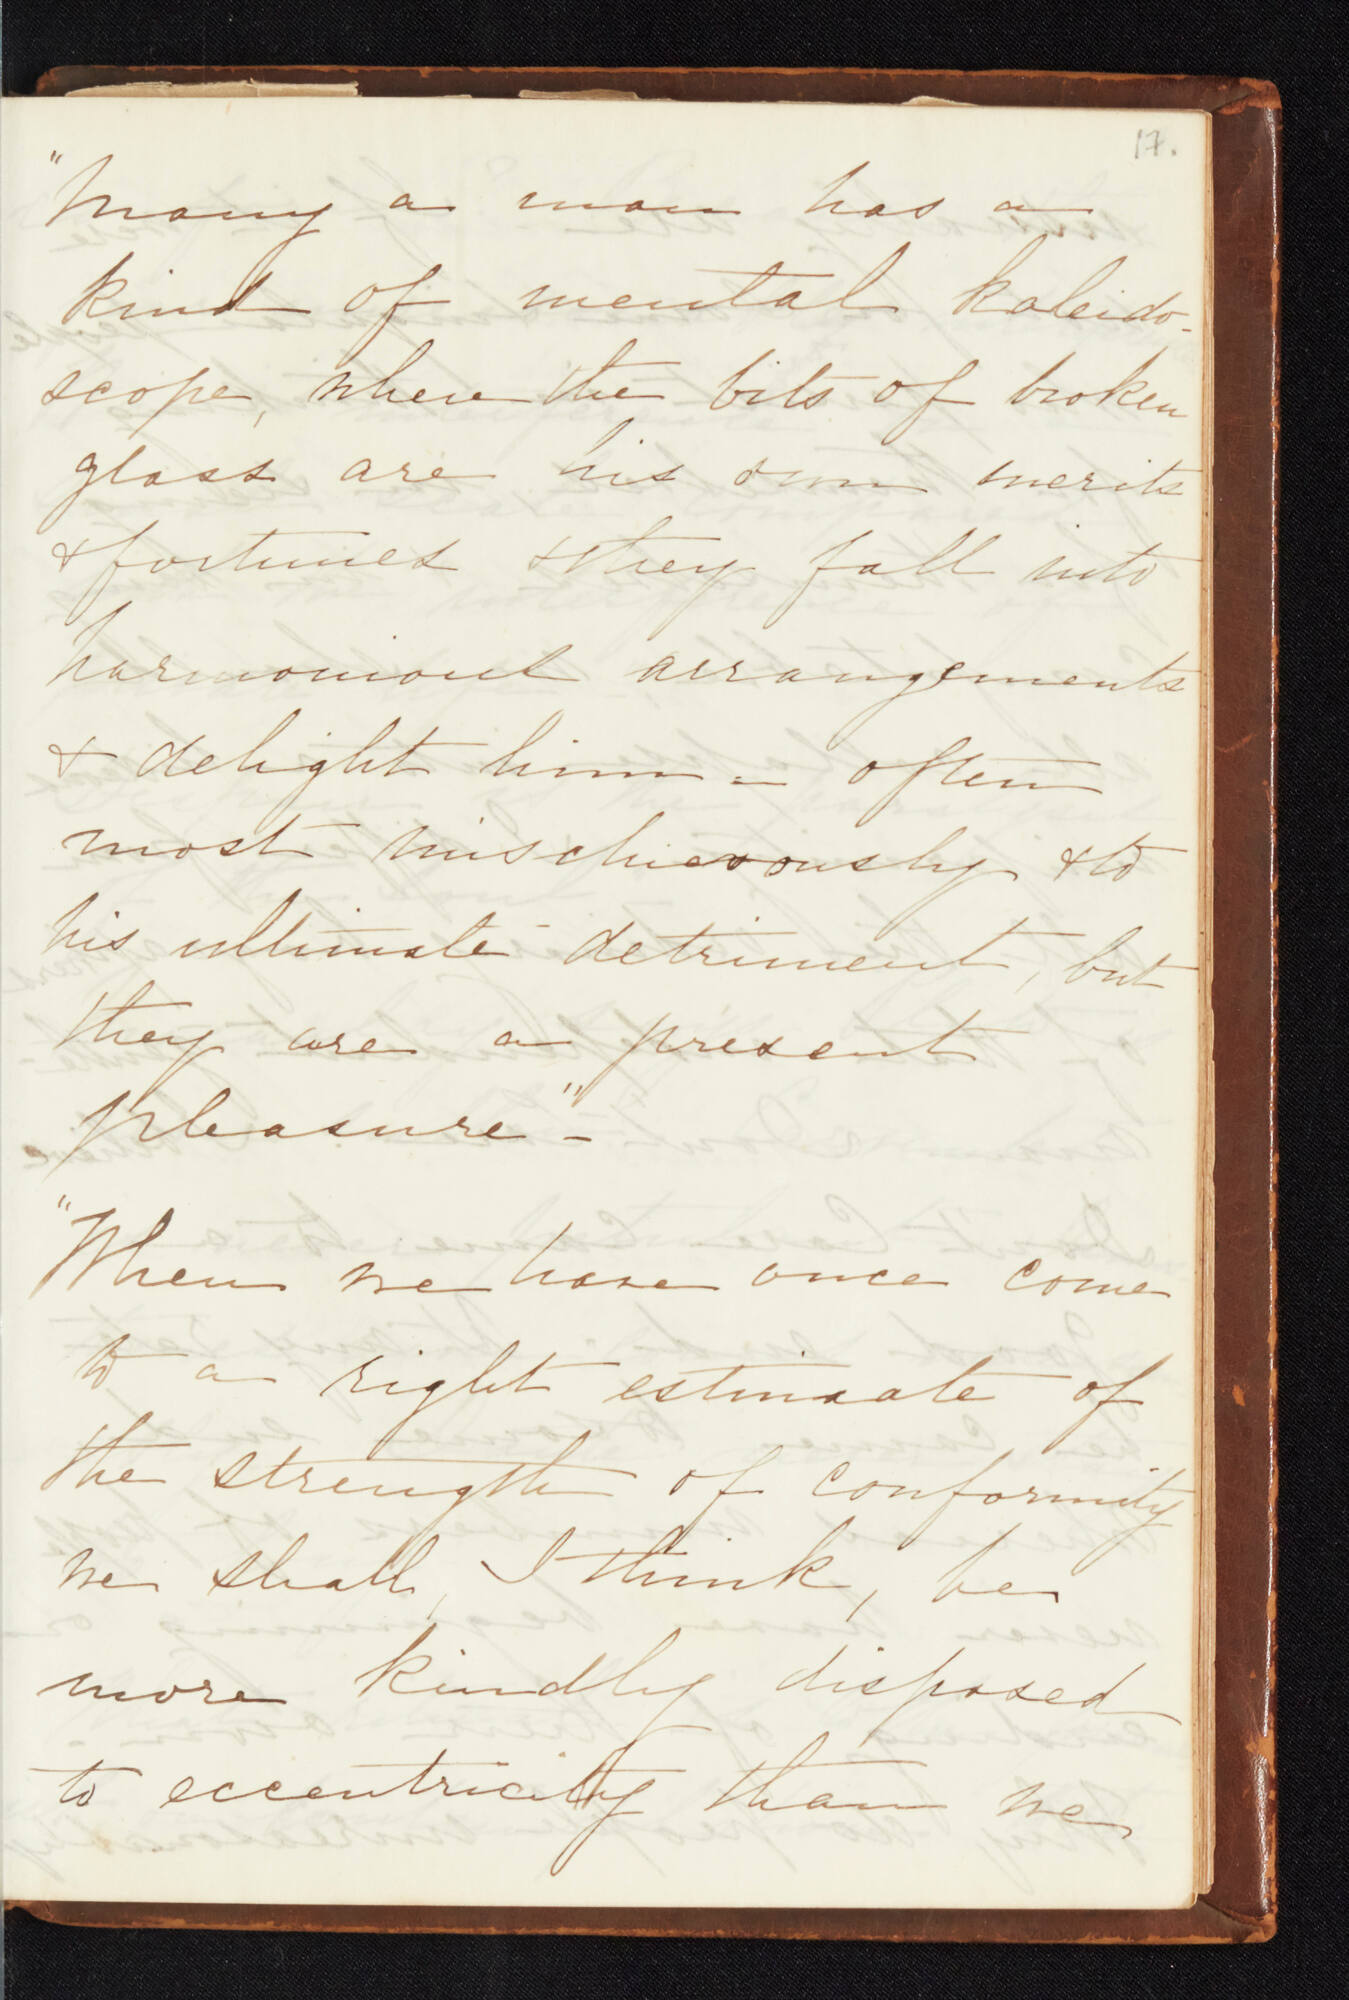 17.
"Many a man has a
kind of mental kaleido-
scope, where the bits of broken
glass are his own merits
& fortunes & they fall into
harmonious arrangements
& delight him - often
most mischievously & to
his ultimate detriment, but
they are a present
pleasure" -
"When we have once come
to a right estimate of
the strength of conformity
we shall, I think, be
more kindly disposed
to eccentricity than we